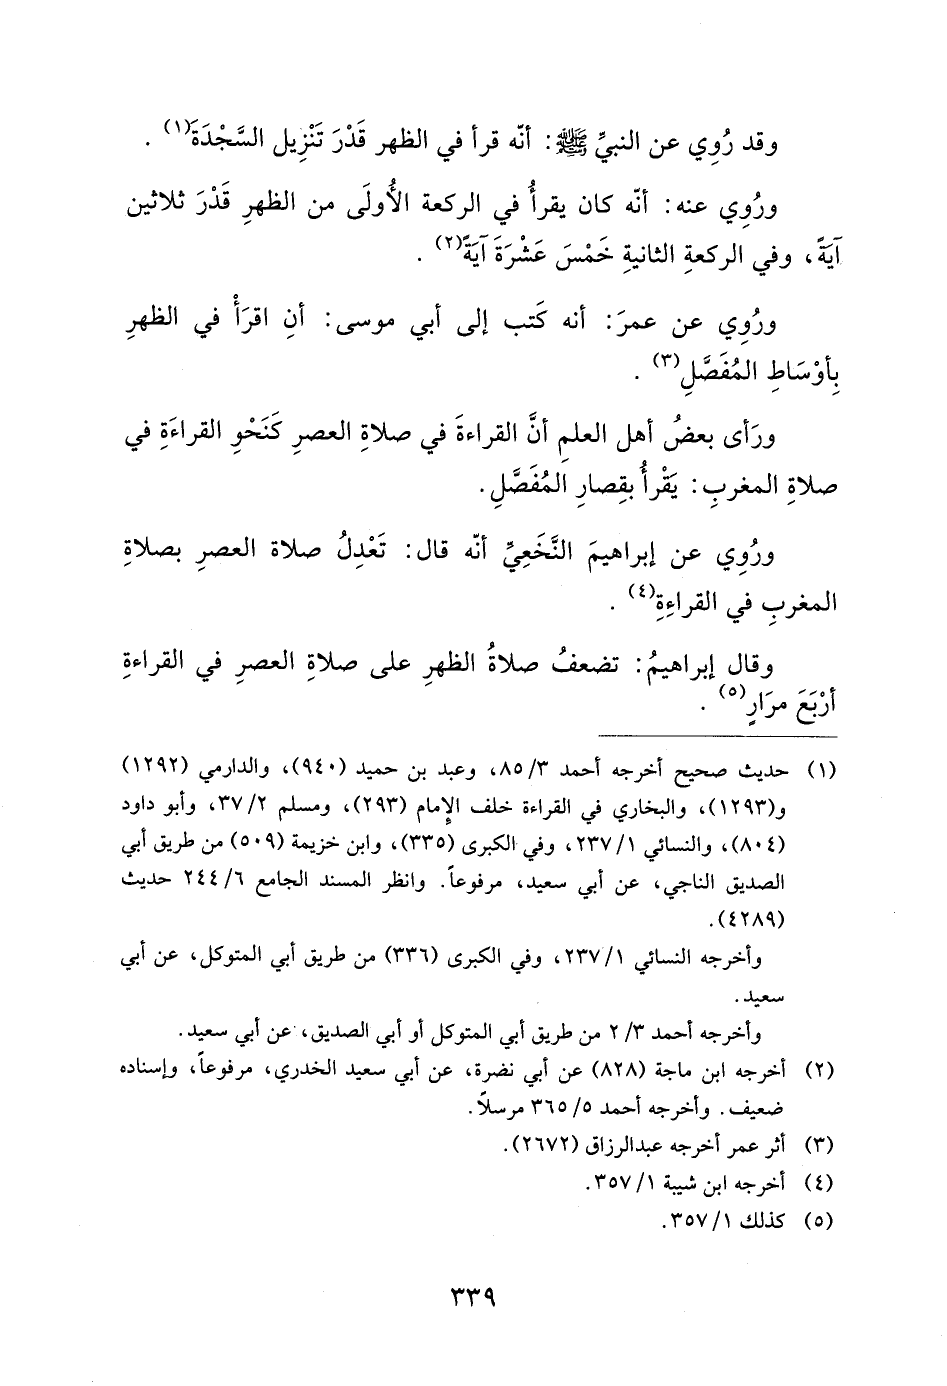 وقد رُوِي عن النبيِّ ﷺ: أنّه قرأ في الظهر قَدْرَ تَنْزِيل السَّجْدَةَ(١) .
ورُوِي عنه: أنّه كان يقرأُ في الركعة الأُولَى من الظهرِ قَدْرَ ثلاثين
آيَةً، وفي الركعةِ الثانيةِ خَمْسَ عَشْرَةَ آيَةً(٢) .
ورُوِي عن عمرَ: أنه كَتب إلى أبي موسى: أنِ اقرَأْ في الظهرِ
بِأوْسَاطِ المُفَصَّلِ(٣) .
ورَأى بعضُ أهل العلمِ أنَّ القراءةَ في صلاةِ العصرِ كَنَحْوِ القراءَةِ في
صلاةِ المغربِ: يَقْرأُ بقِصارِ المُفَصَّلِ.
ورُوِي عن إبراهيمَ النَّخَعِيِّ أنّه قال: تَعْدِلُ صلاة العصرِ بصلاةِ
المغربِ في القراءِةِ(٤) .
وقال إبراهيمُ: تضعفُ صلاةُ الظهرِ على صلاةِ العصرِ في القراءةِ
أرْبَعَ مرَارٍ(٥) .
(١) حديث صحيح أخرجه أحمد ٣/ ٨٥، وعبد بن حميد (٩٤٠)، والدارمي (١٢٩٢)
و(١٢٩٣)، والبخاري في القراءة خلف الإمام (٢٩٣)، ومسلم ٢/ ٣٧، وأبو داود
(٨٠٤)، والنسائي ١/ ٢٣٧، وفي الكبرى (٣٣٥)، وابن خزيمة (٥٠٩) من طريق أبي
الصديق الناجي، عن أبي سعيد، مرفوعاً. وانظر المسند الجامع ٦/ ٢٤٤ حديث
(٤٢٨٩).
وأخرجه النسائي ١/ ٢٣٧، وفي الكبرى (٣٣٦) من طريق أبي المتوكل، عن أبي
سعيد.
وأخرجه أحمد ٣/ ٢ من طريق أبي المتوكل أو أبي الصديق، عن أبي سعيد.
(٢) أخرجه ابن ماجة (٨٢٨) عن أبي نضرة، عن أبي سعيد الخدري، مرفوعاً، وإسناده
ضعيف. وأخرجه أحمد ٥/ ٣٦٥ مرسلاً.
(٣) أثر عمر أخرجه عبدالرزاق (٢٦٧٢).
(٤) أخرجه ابن شيبة ١/ ٣٥٧.
(٥) كذلك ١/ ٣٥٧.
٣٣٩